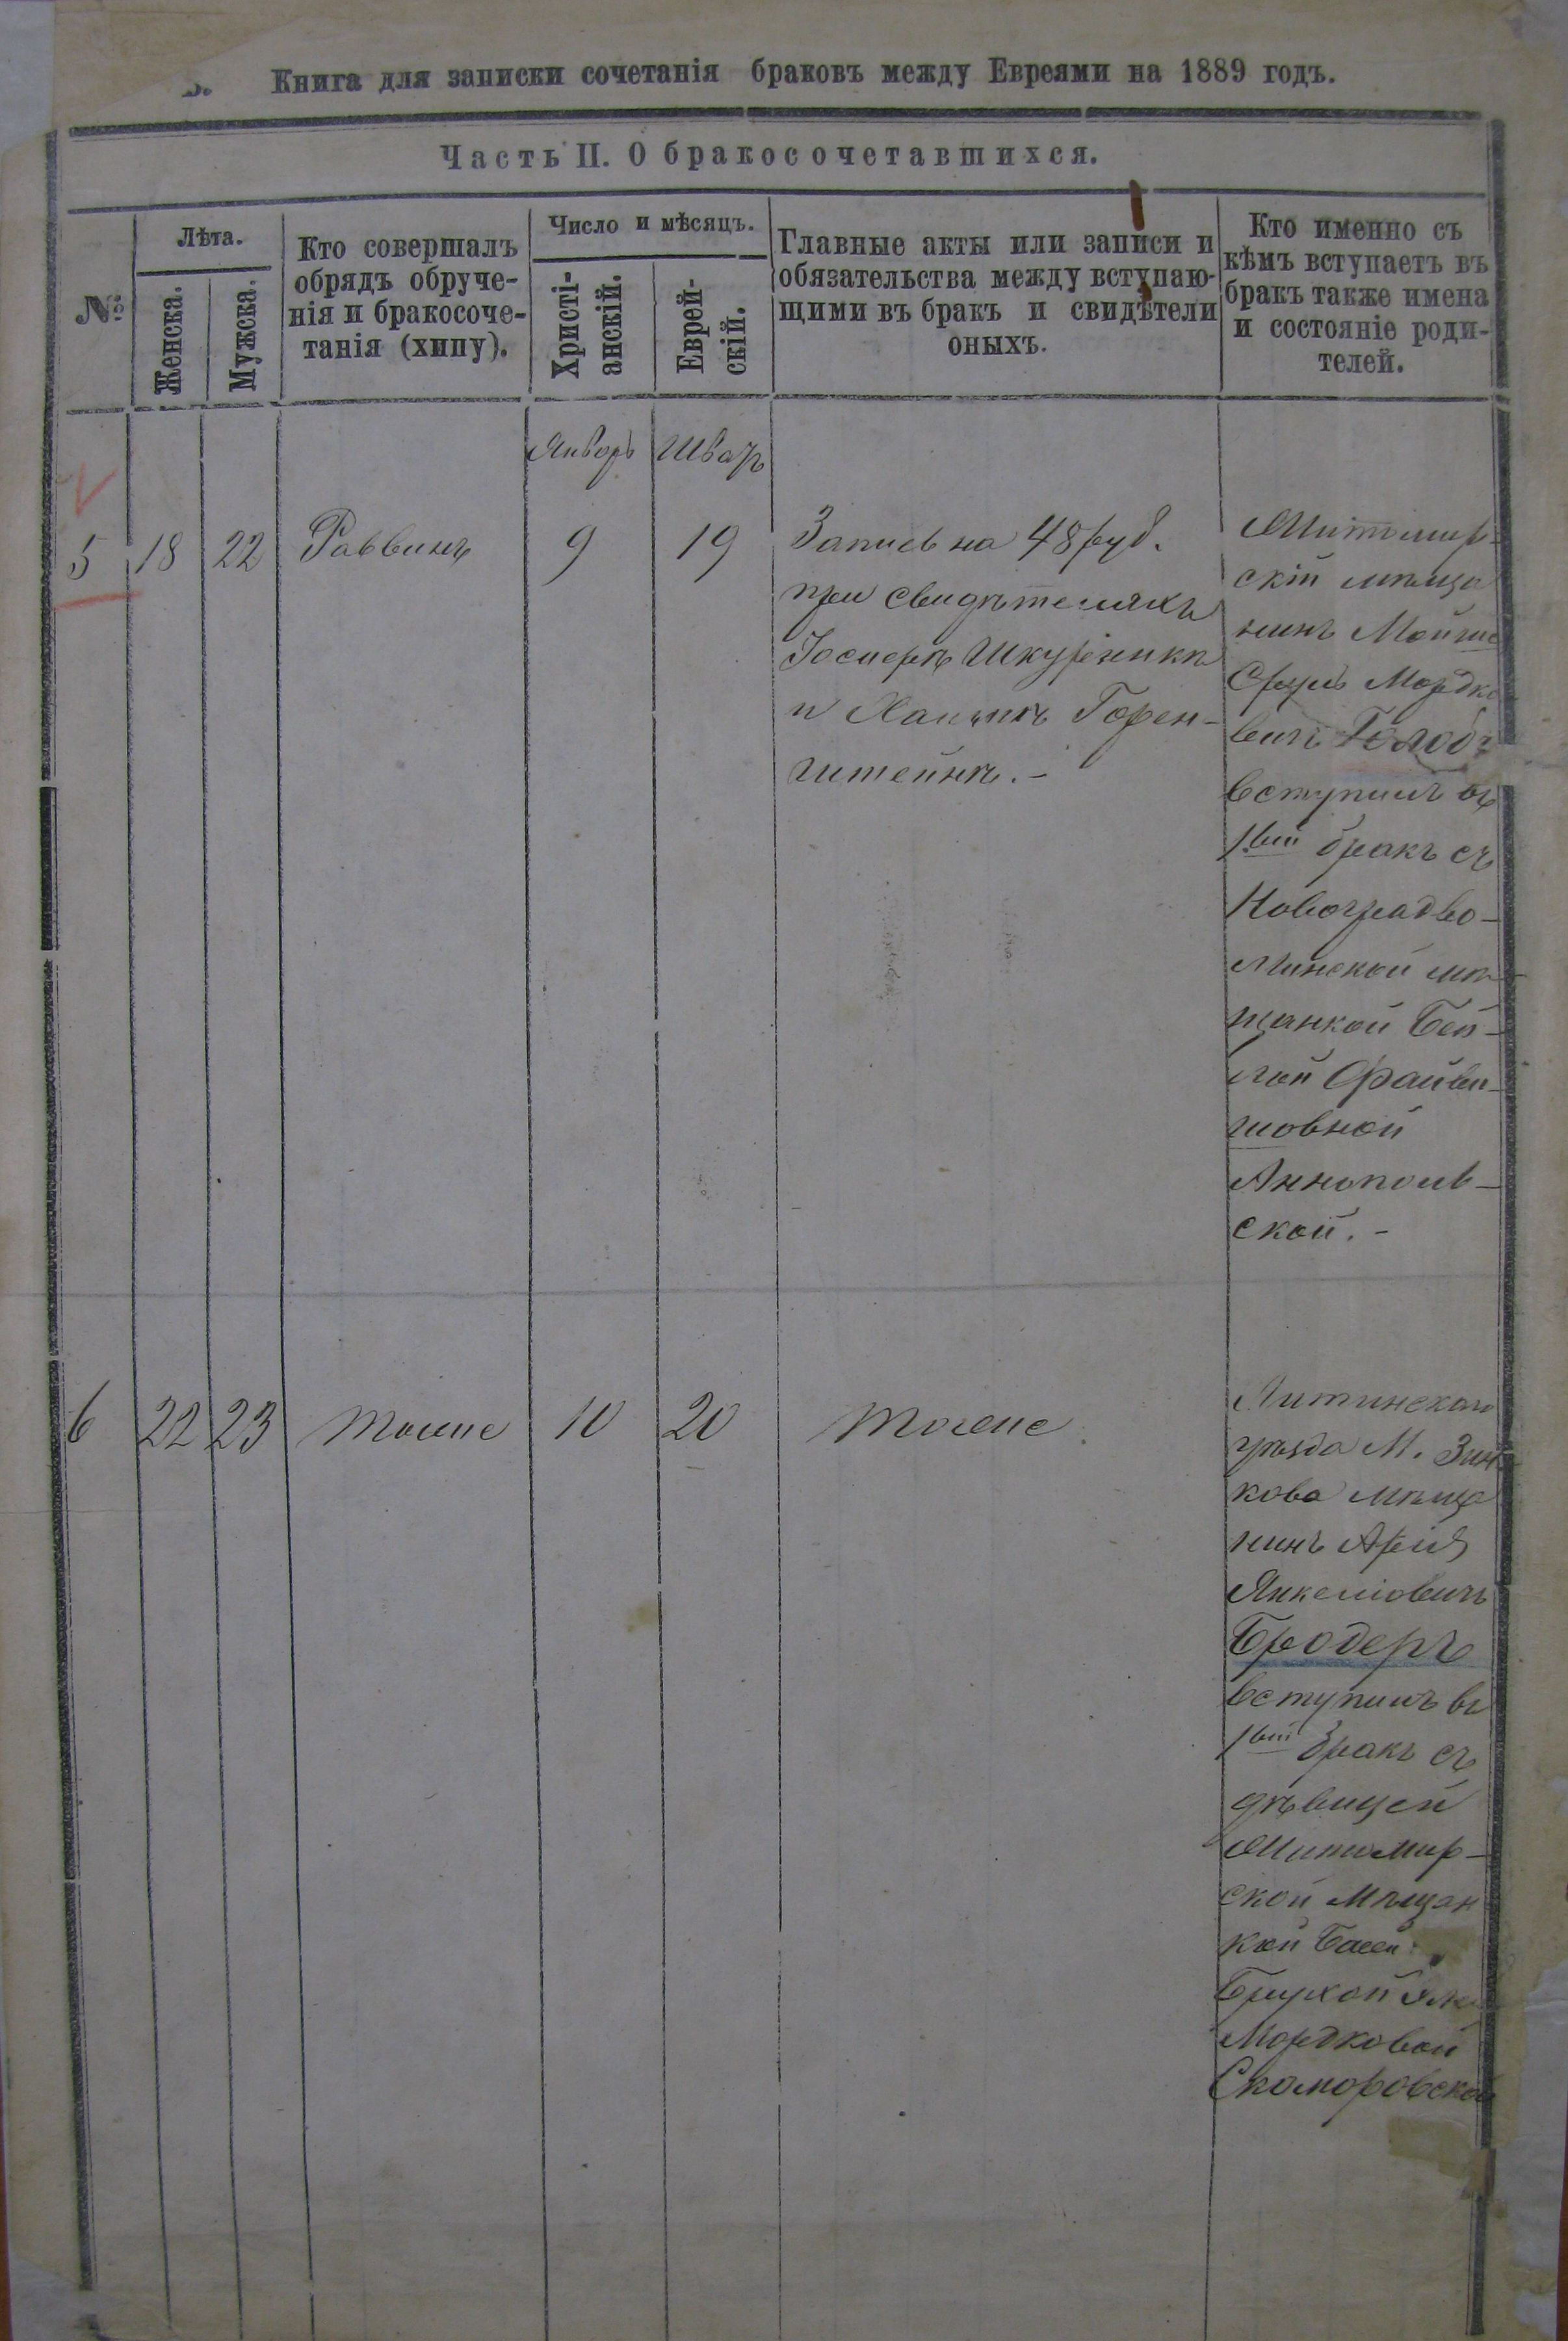 Книга для записки сочетанія браковъ между Евреями на 1889 годъ.
Часть II. О бракосочетавшихся.
№
Лѣта.
Женска.
Мужска.
Кто совершалъ
обрядъ обруче-
нія и бракосоче-
танія (хипу).
Число и мѣсяцъ.
Христі-
анскій.
Еврей-
скій.
Главные акты или записи и
обязательства между вступаю-
щими въ бракъ и свидѣтели
оныхъ.
Кто именно съ
кѣмъ вступаетъ въ
бракъ также имена
и состояніе роди-
телей.
Январь
Шватъ
5
18
22
Раввинъ
9
19
Запись на 48 руб.
при свидѣтеляхъ
Іосифѣ Шкурникѣ
и Хаимѣ Горен-
штейнѣ.-
Житомир-
скій мѣща
нинъ Мойше
Сруль Мордко
вичъ Голобъ
вступилъ въ
1вый бракъ съ
Новоградво-
линской мѣ-
щанкой Бей-
лой Файви-
шовной
Аннополь-
ской.-
6
22
23
Тоже
10
20
Тоже
Литинскаго
уѣзда М. Зинь
кова мѣща
нинъ Арія
Янкеліовичъ
Бродеръ
вступилъ въ
1вый бракъ съ
дѣвицей
Житомир-
ской мѣщан
кой Басей
Брухой
Мордковой
Скоморовской